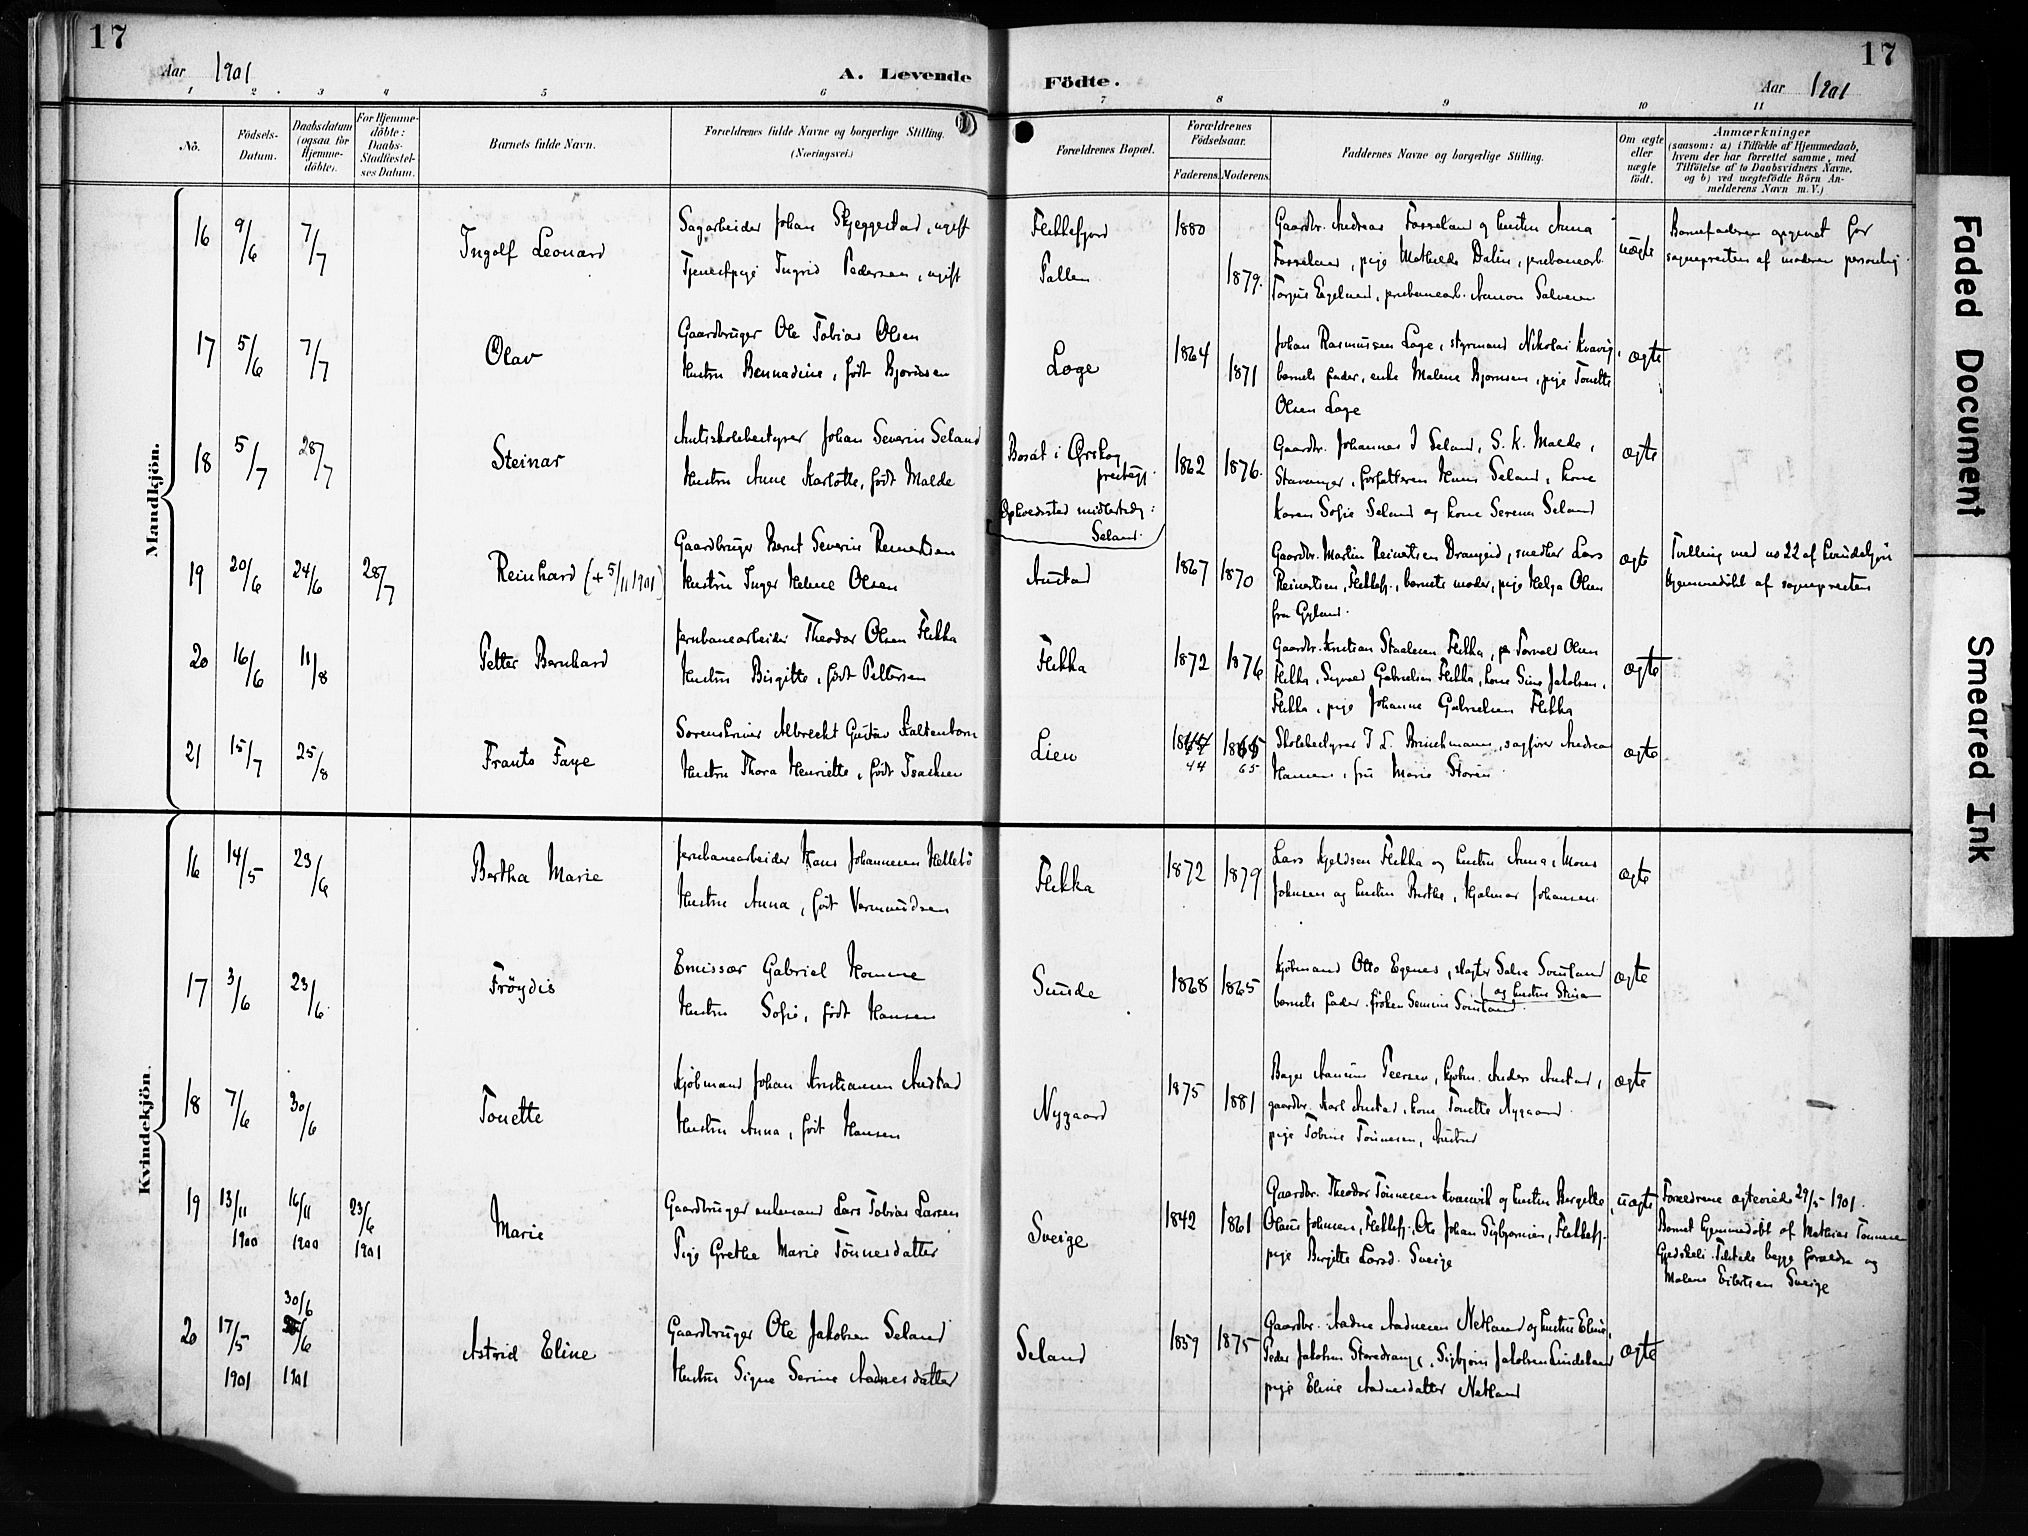 17
Aar 1901
A. Levende
Födte.
17
Aar 1901
1 2 3 4 5 6 7 8 9 10 11
Nô.
Födsels-
Datum.
Daabsdatum
(ogsaa for
Hjemme-
döbte).
For Hjemme-
döbte:
Daabs-
Stadfæstel-
ses Datum.
Barnets fulde Navn.
Forældrenes fulde Navne og borgerlige Stilling.
(Næringsvei.)
Forældrenes Bopæl.
Forældrenes
Födselsaar.
Faderens.
Moderens.
Faddernes Navne og borgerlige Stilling.
Om ægte
eller
uægte
födt.
Anmærkninger
(saasom: a) i Tilfælde af Hjemmedaab,
hvem der har forrettet samme, med
Tilföielse af to Daabsvidners Navne,
og b) ved uægtefödte Börn An-
melderens Navn m. V.)
Mandkjön.
16 9/6 7/7 Ingolf Leonard
Sagarbeider Johan Skjeggestad, ugift
Tjenestpige Ingrid Pedersen, ugift
Flekkefjord
1880
1879.
Gaardbr. Andreas Fosseland og hustru Anna
Fosseland, pige Mathilde Dalin, jernbanearb.
uægte
Barnefaderen opgivet for
sognepresten af moderen personlig.
17 5/6 7/7 Olav
Gaardbruger Ole Tobias Olsen
Hustru Bernadine, födt Bjornsen
Loge
1864
1871
Johan Rasmussen Loge, styrmand Nikolai Kvavig,
barnets fader, enke Malene Bjornsen, pige Tonette
Olsen Loge
ægte
18 5/7 28/7 Steinar
Amtsskolebestyrer Johan Severin Seland
Hustru Anne Karlotte, födt Malde
Bosat i Ørskog
prestegj.
Opholdssted midlertidig:
Seland.
1862 1876.
Gaardbr. Johannes J Seland, S. K. Malde,
Stavanger, forfatteren Hans Seland, kone
Karen Sofie Seland og kone Serena Seland
ægte
19 20/6 24/6 28/7 Reinhard (+ 5/11 1901)
Gaardbruger Bernt Severin Reinertsen
Hustru Inger Helene Olsen
Austad
1867 1870
Gaardbr. Martin Reinertsen Drangeid, snedker Lars
Reinertsen, Flekkefj., barnets moder, pige Helga Olsen
fra Gyland.
ægte
Tvilling med no 22 af kvindekjön
Hjemmedöbt af sognepresten
20 16/6 11/8 Petter Bernhard
Jernbanearbeider Theodor Olsen Flikka
Hustru Birgitte, födt Pettersen
Flikka
1872 1876
Gaardbr. Kristian Staalesen Flikka, Torvald Olsen
Flikka, Sigvald Gabrielsen Flikka, kone Sine Jakobsen,
Flikka, pige Johanne Gabrielsen Flikka
ægte
21 15/7 25/8 Frants Faye
Sorenskriver Albrecht Gustav Kaltenborn
Hustru Thora Henriette, födt Isachsen
Lien
1844
44
1865
65
Skolebestyrer J L. Brinchmann, sagförer Andreas
Hansen, fru Marie Storm
ægte
Kvindekjön.
16 14/5 23/6 Bertha Marie
Jernbanearbeider Hans Johannesen Hellebö
Hustru Anna, födt Vermundsen
Flikka
1872 1879
Lars Kjeldsen Flikka og hustru Anna, Mons
Johnsen og hustru Berthe, Hjalmar Johansen
ægte
17 3/6 23/6 Fröydis
Emissær Gabriel Homme
Hustru Sofie, födt Hansen
Sunde
1868 1865
Kjöbmand Otto Egenes, slagter Salve
og hustru Stina
barnets fader, fröken
ægte
18 7/6 30/6 Tonette
Kjöbmand Johan Kristiansen Austad
Hustru Anna, födt Hansen
Nygaard
1875 1881
Bager Peersen, kjöbm. Anders Austad,
gaardbr. Karl Austad, kone Tonette Nygaard
pige Tobine Tönnesen, Austad
ægte
19 13/11 1900 16/11 1900 23/6 1901 Marie
Gaardbruger enkemand Lars Tobias Larsen
Pige Grethe Marie Tönnesdatter
Sveige
1842 1861
Gaardbr. Theodor Tönnesen Kvanvik og hustru Bergette,
Olaus Johnsen, Flekkefj., Ole Johan Sigbjornsen, Flekkefj.
pige Birgitte Larsd. Sveige
uægte
Forældrene ægteviede 29/5 1901.
Barnet hjemmedöbt af Mathias Tönnesen
Gjedskeli. Tilstede begge forældre og
Malene Eilertsen Sveige
20 17/5 1901 30/6 /6 1901 Astrid Eline
Gaardbruger Ole Jakobsen Seland
Hustru Signe Serine Aadnesdatter
Seland
1859 1875
Gaardbr. Aadne Aadnesen Netland og hustru Eline,
Peder Jakobsen Storedrange, Sigbjörn Jakobsen Lindeland
pige Eline Aadnesdatter Netland
ægte
Faded Document
Smeared Ink